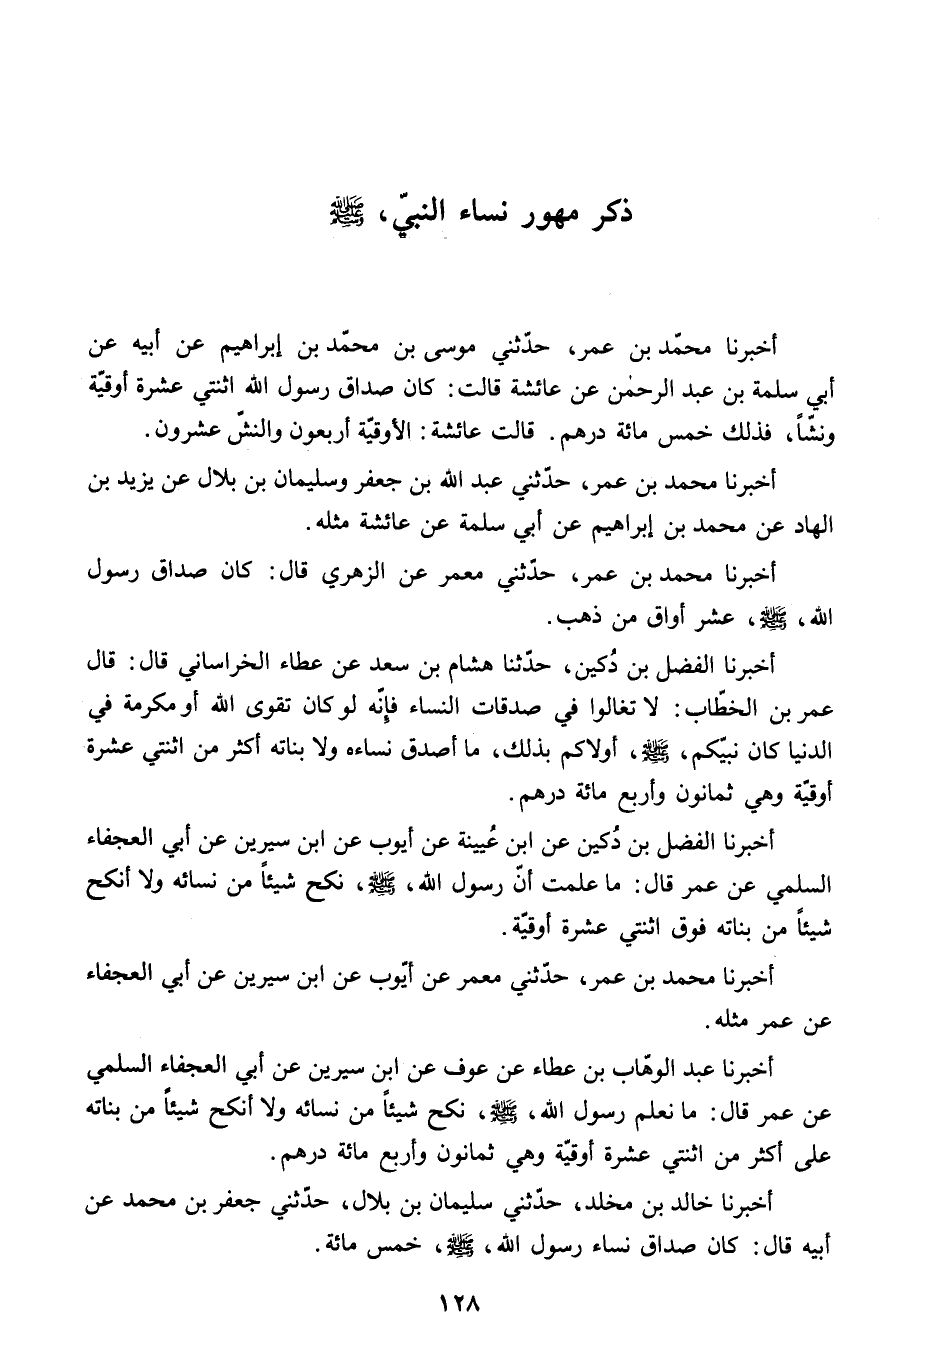 ذكر مهور نساء النبيّ، ﷺ
أخبرنا محمّد بن عمر، حدّثني موسى بن محمّد بن إبراهيم عن أبيه عن
أبي سلمة بن عبد الرحمٰن عن عائشة قالت: كان صداق رسول الله اثنتي عشرة أوقيّة
ونشّاً، فذلك خمس مائة درهم. قالت عائشة: الأوقيّة أربعون والنشّ عشرون.
أخبرنا محمد بن عمر، حدّثني عبد الله بن جعفر وسليمان بن بلال عن يزيد بن
الهاد عن محمد بن إبراهيم عن أبي سلمة عن عائشة مثله.
أخبرنا محمد بن عمر، حدّثني معمر عن الزهري قال: كان صداق رسول
الله، ﷺ، عشر أواق من ذهب.
أخبرنا الفضل بن دُكين، حدّثنا هشام بن سعد عن عطاء الخراساني قال: قال
عمر بن الخطّاب: لا تغالوا في صدقات النساء فإنّه لو كان تقوى الله أو مكرمة في
الدنيا كان نبيّكم، ﷺ، أولاكم بذلك، ما أصدق نساءه ولا بناته أكثر من اثنتي عشرة
أوقيّة وهي ثمانون وأربع مائة درهم.
أخبرنا الفضل بن دُكين عن ابن عُيينة عن أيوب عن ابن سيرين عن أبي العجفاء
السلمي عن عمر قال: ما علمت أنّ رسول الله، ﷺ، نكح شيئاً من نسائه ولا أنكح
شيئاً من بناته فوق اثنتي عشرة أوقيّة.
أخبرنا محمد بن عمر، حدّثني معمر عن أيّوب عن ابن سيرين عن أبي العجفاء
عن عمر مثله.
أخبرنا عبد الوهّاب بن عطاء عن عوف عن ابن سيرين عن أبي العجفاء السلمي
عن عمر قال: ما نعلم رسول الله، ﷺ، نكح شيئاً من نسائه ولا أنكح شيئاً من بناته
على أكثر من اثنتي عشرة أوقيّة وهي ثمانون وأربع مائة درهم.
أخبرنا خالد بن مخلد، حدّثني سليمان بن بلال، حدّثني جعفر بن محمد عن
أبيه قال: كان صداق نساء رسول الله، ﷺ، خمس مائة.
١٢٨